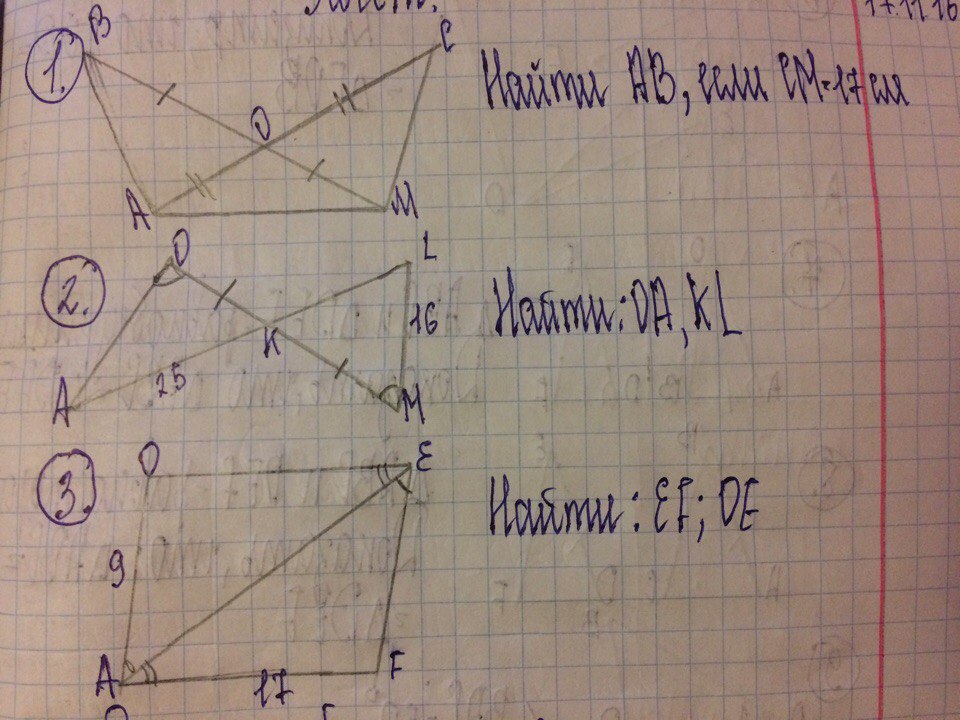 17.11.16
1.
B
C
O
A
M
Найти AB, если CM=17см
2.
O
L
16
K
25
A
M
Найти: OA, KL
3.
O
E
9
A
17
F
Найти: EF; OE